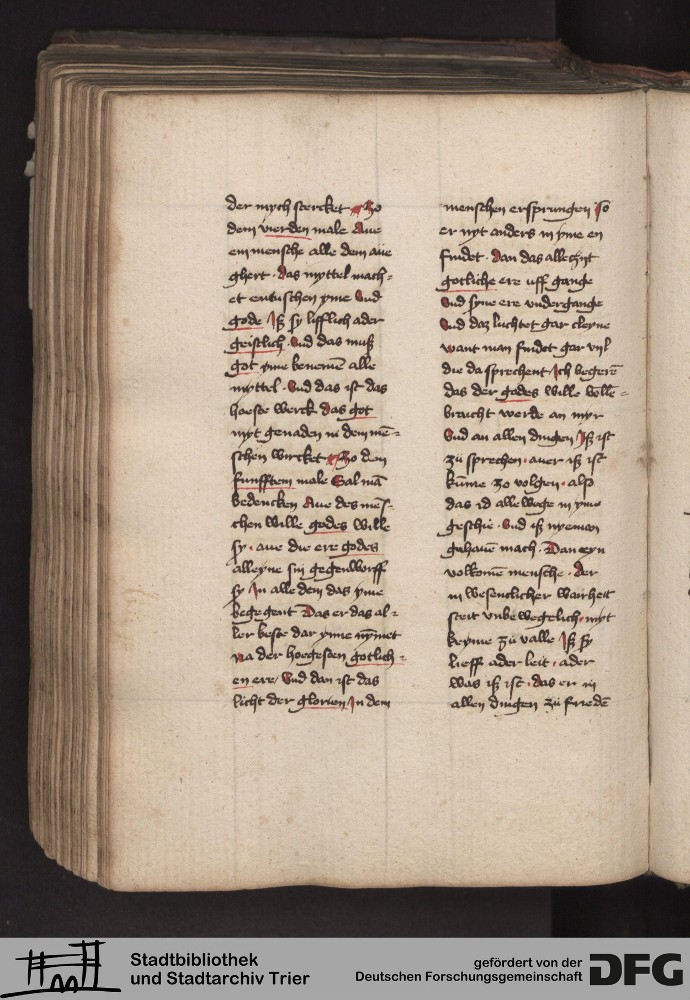 der mych stercket Zo
dem vierden male Aue
ein mensche alle dem aue
ghert · das myttel mach-
et entuschen yme Vnd
gode Jß sy lifflich ader
geistlich · vnd das muß
got yme benemē alle
myttel · Vnd das ist das
hoeste werck das got
myt genaden in dem mē-
schen wircket Zo dem
funfftem male Sal mā
bedencken Aue des mēs-
chen wille godes wille
sy · aue die ere godes
alleyne sin gegenworff
sy Jn alle dem das yme
begegent Das er das al-
ler beste dar ynne nȳmet
na der hoegesten gotlich-
en ere / Vnd dan ist das
licht der glorien Jn dem
menschen ersprungen so
er nyt anders in yme en
findet · dan das alleczijt
gotliche ere uff gange
Vnd syne ere vndergange
Vnd daz luchtet gar cleyne
want man findet gar vyl
die da sprechent · Ich begerē
das der godes wille vōllē-
bracht werde an myr
Vnd an allen dingen Jß ist
zü sprechen · auer iß ist
kūme zo volgen · also
das id alle wege in yme
geschie · Vnd iß nyeman
gehauē mach · Dan eyn
volkomē mensche · der
in wesenclicher wairheit
steit vnbewegelich · nyt
keyme zü valle Jß sy
lieff ader leit · ader
was iß ist · das er in
allen dingen zü friedē
Stadtbibliothek
und Stadtarchiv Trier
gefördert von der
Deutschen Forschungsgemeinschaft
DFG